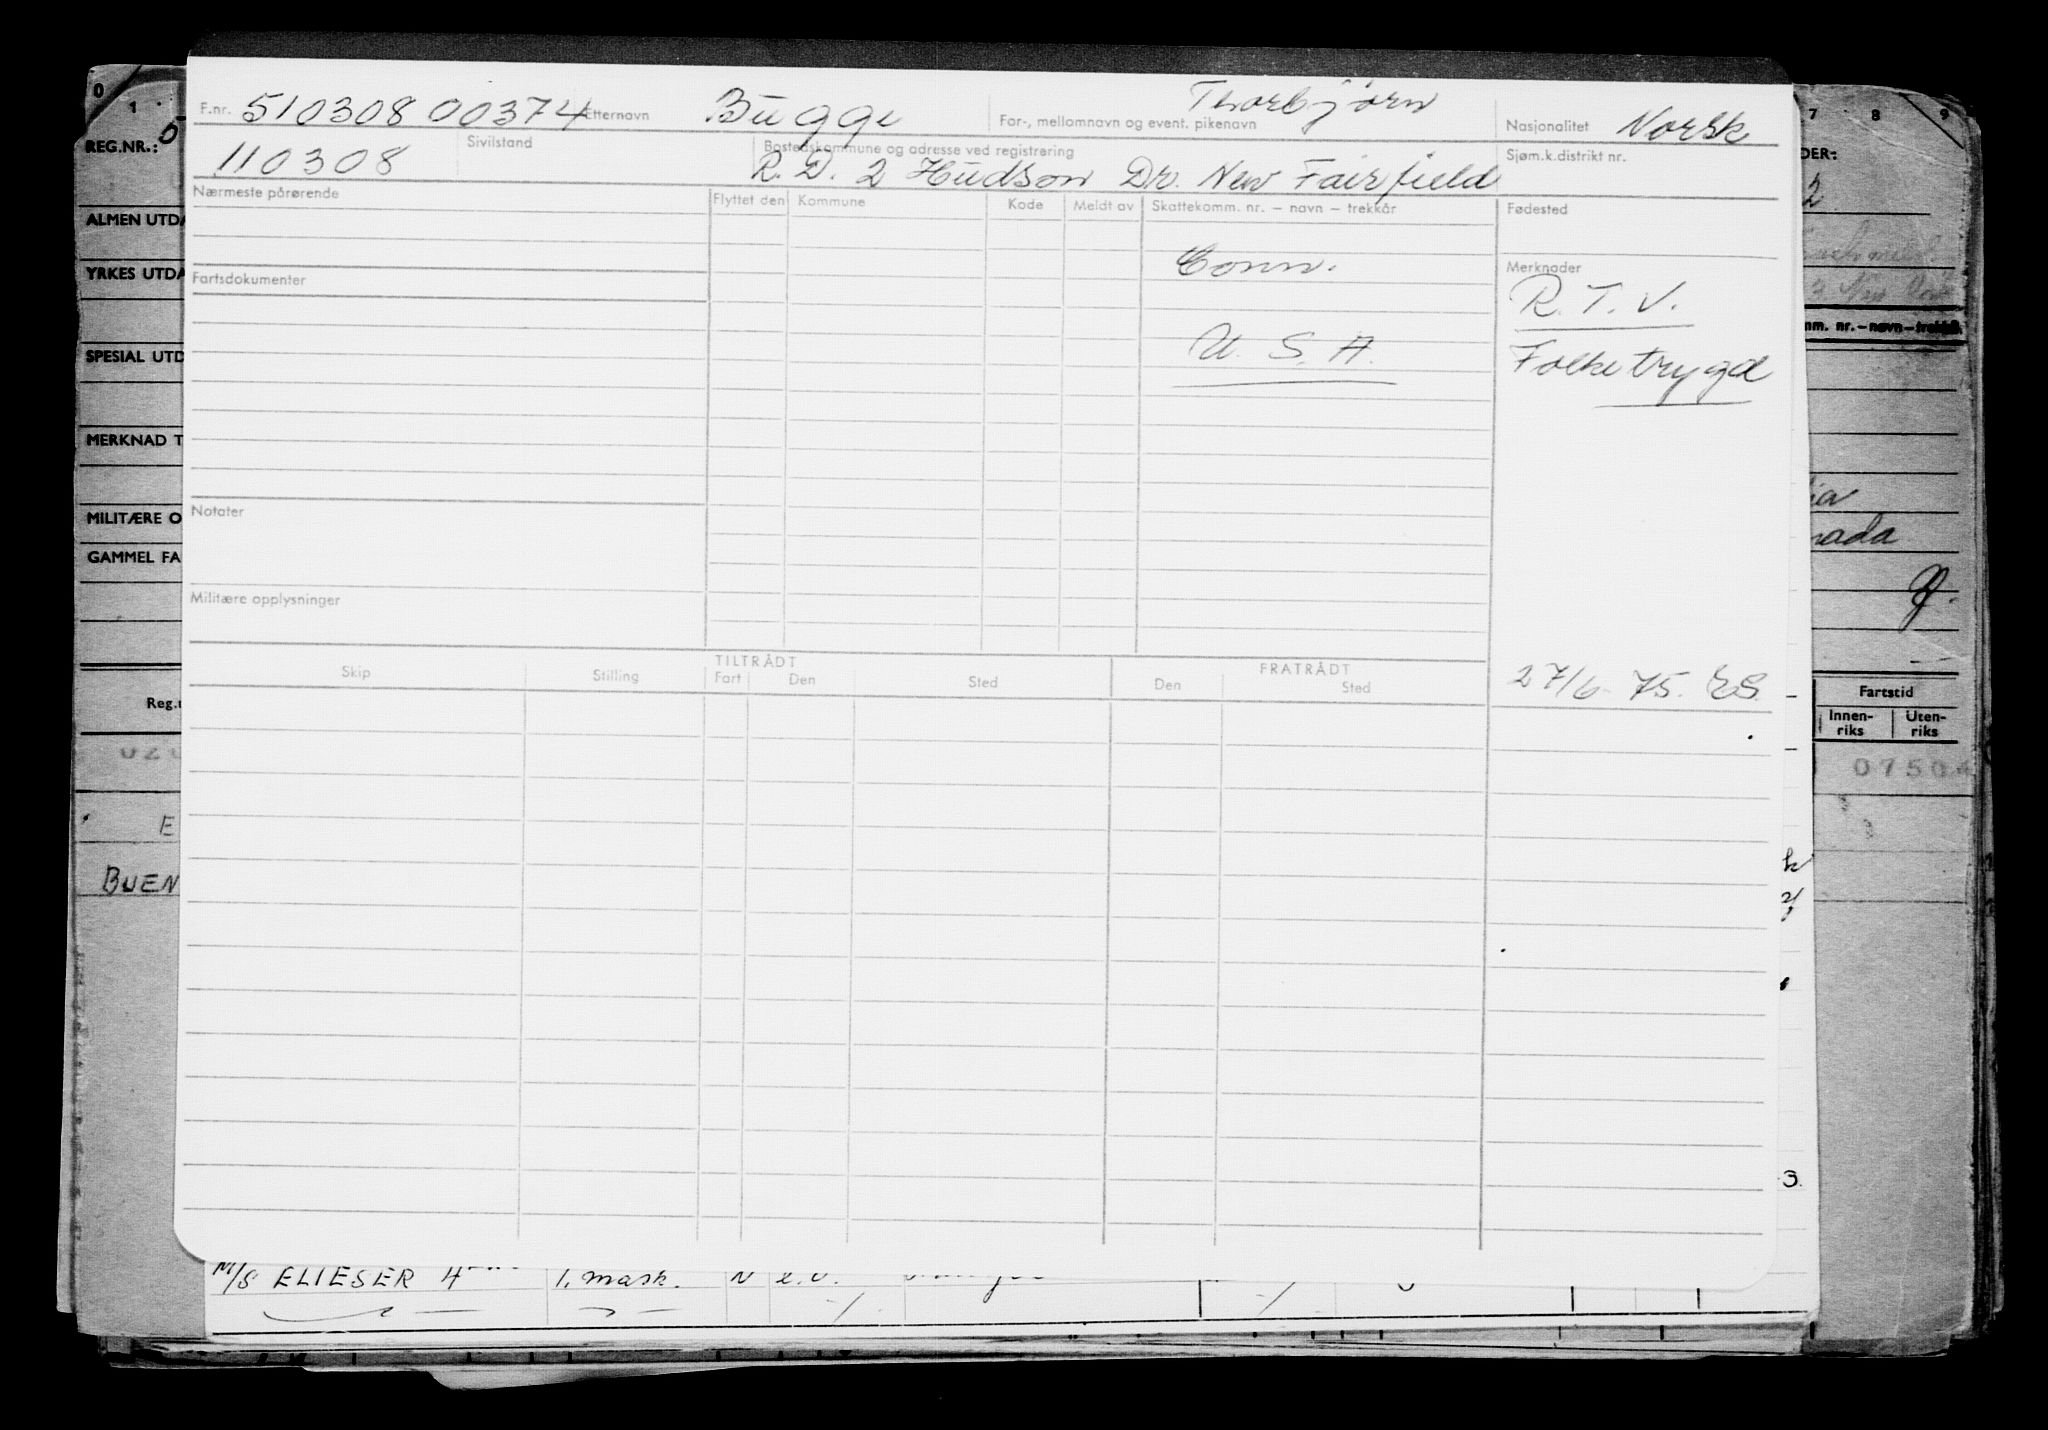 F.nr. 510308 00374 Etternavn Bugge For-, mellomnavn og event. pikenavn Thorbjörn Nasjonalitet Norsk
110308 Sivilstand Bostedskommune og adresse ved registrering R. D. 2 Hudson Dr. New Fairfield Sjøm.k.distrikt nr.
Nærmeste pårørende Flyttet den Kommune Kode Meldt av Skattekomm. nr. – navn – trekkår Fødested
Conn.
Fartsdokumenter Merknader
R. T. V.
U. S. A.
Folketrygd
Notater
Militære opplysninger
TILTRÅDT FRATRÅDT
Skip Stilling Fart Den Sted Den Sted
27/6 75. ES.
0 1 7 8 9
REG.NR.:
DER:
2
ALMEN UTDA
YRKES UTDA
mm. nr.–navn–trekkår
SPESIAL UTD
MERKNAD T
MILITÆRE O
GAMMEL FA
nada
Reg.
Fartstid
Innen-riks Uten-riks
0750
E
BUEN
3.
M/S ELIESER 1. mask. N